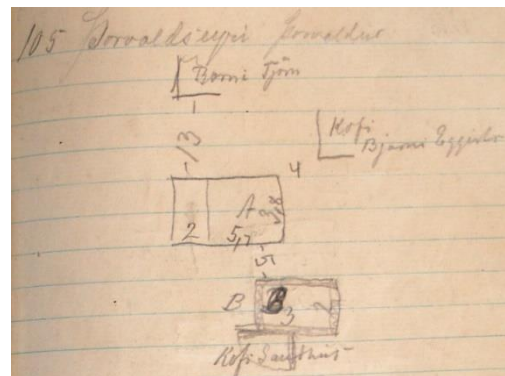 105 Þorvaldseyri Þorvaldur
Bjarni Tjörn
13
Kofi
Bjarni Eggerts
4
A
3,8
2
5,7
5
B
B
3
2
Kofi Sandhús